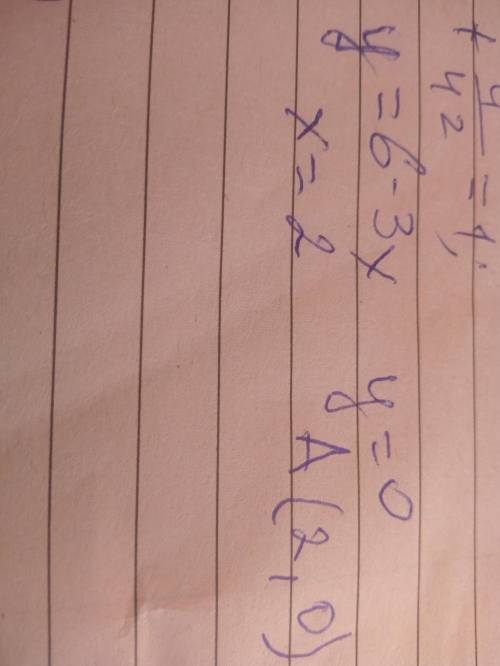 + y/y2 = 1;
y = 6 - 3x y = 0
x = 2 A (2, 0)